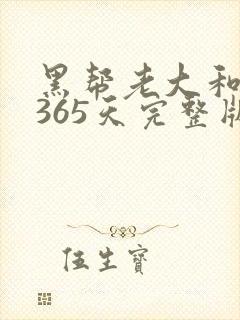 黑帮老大和
365天完整版
伍生宝